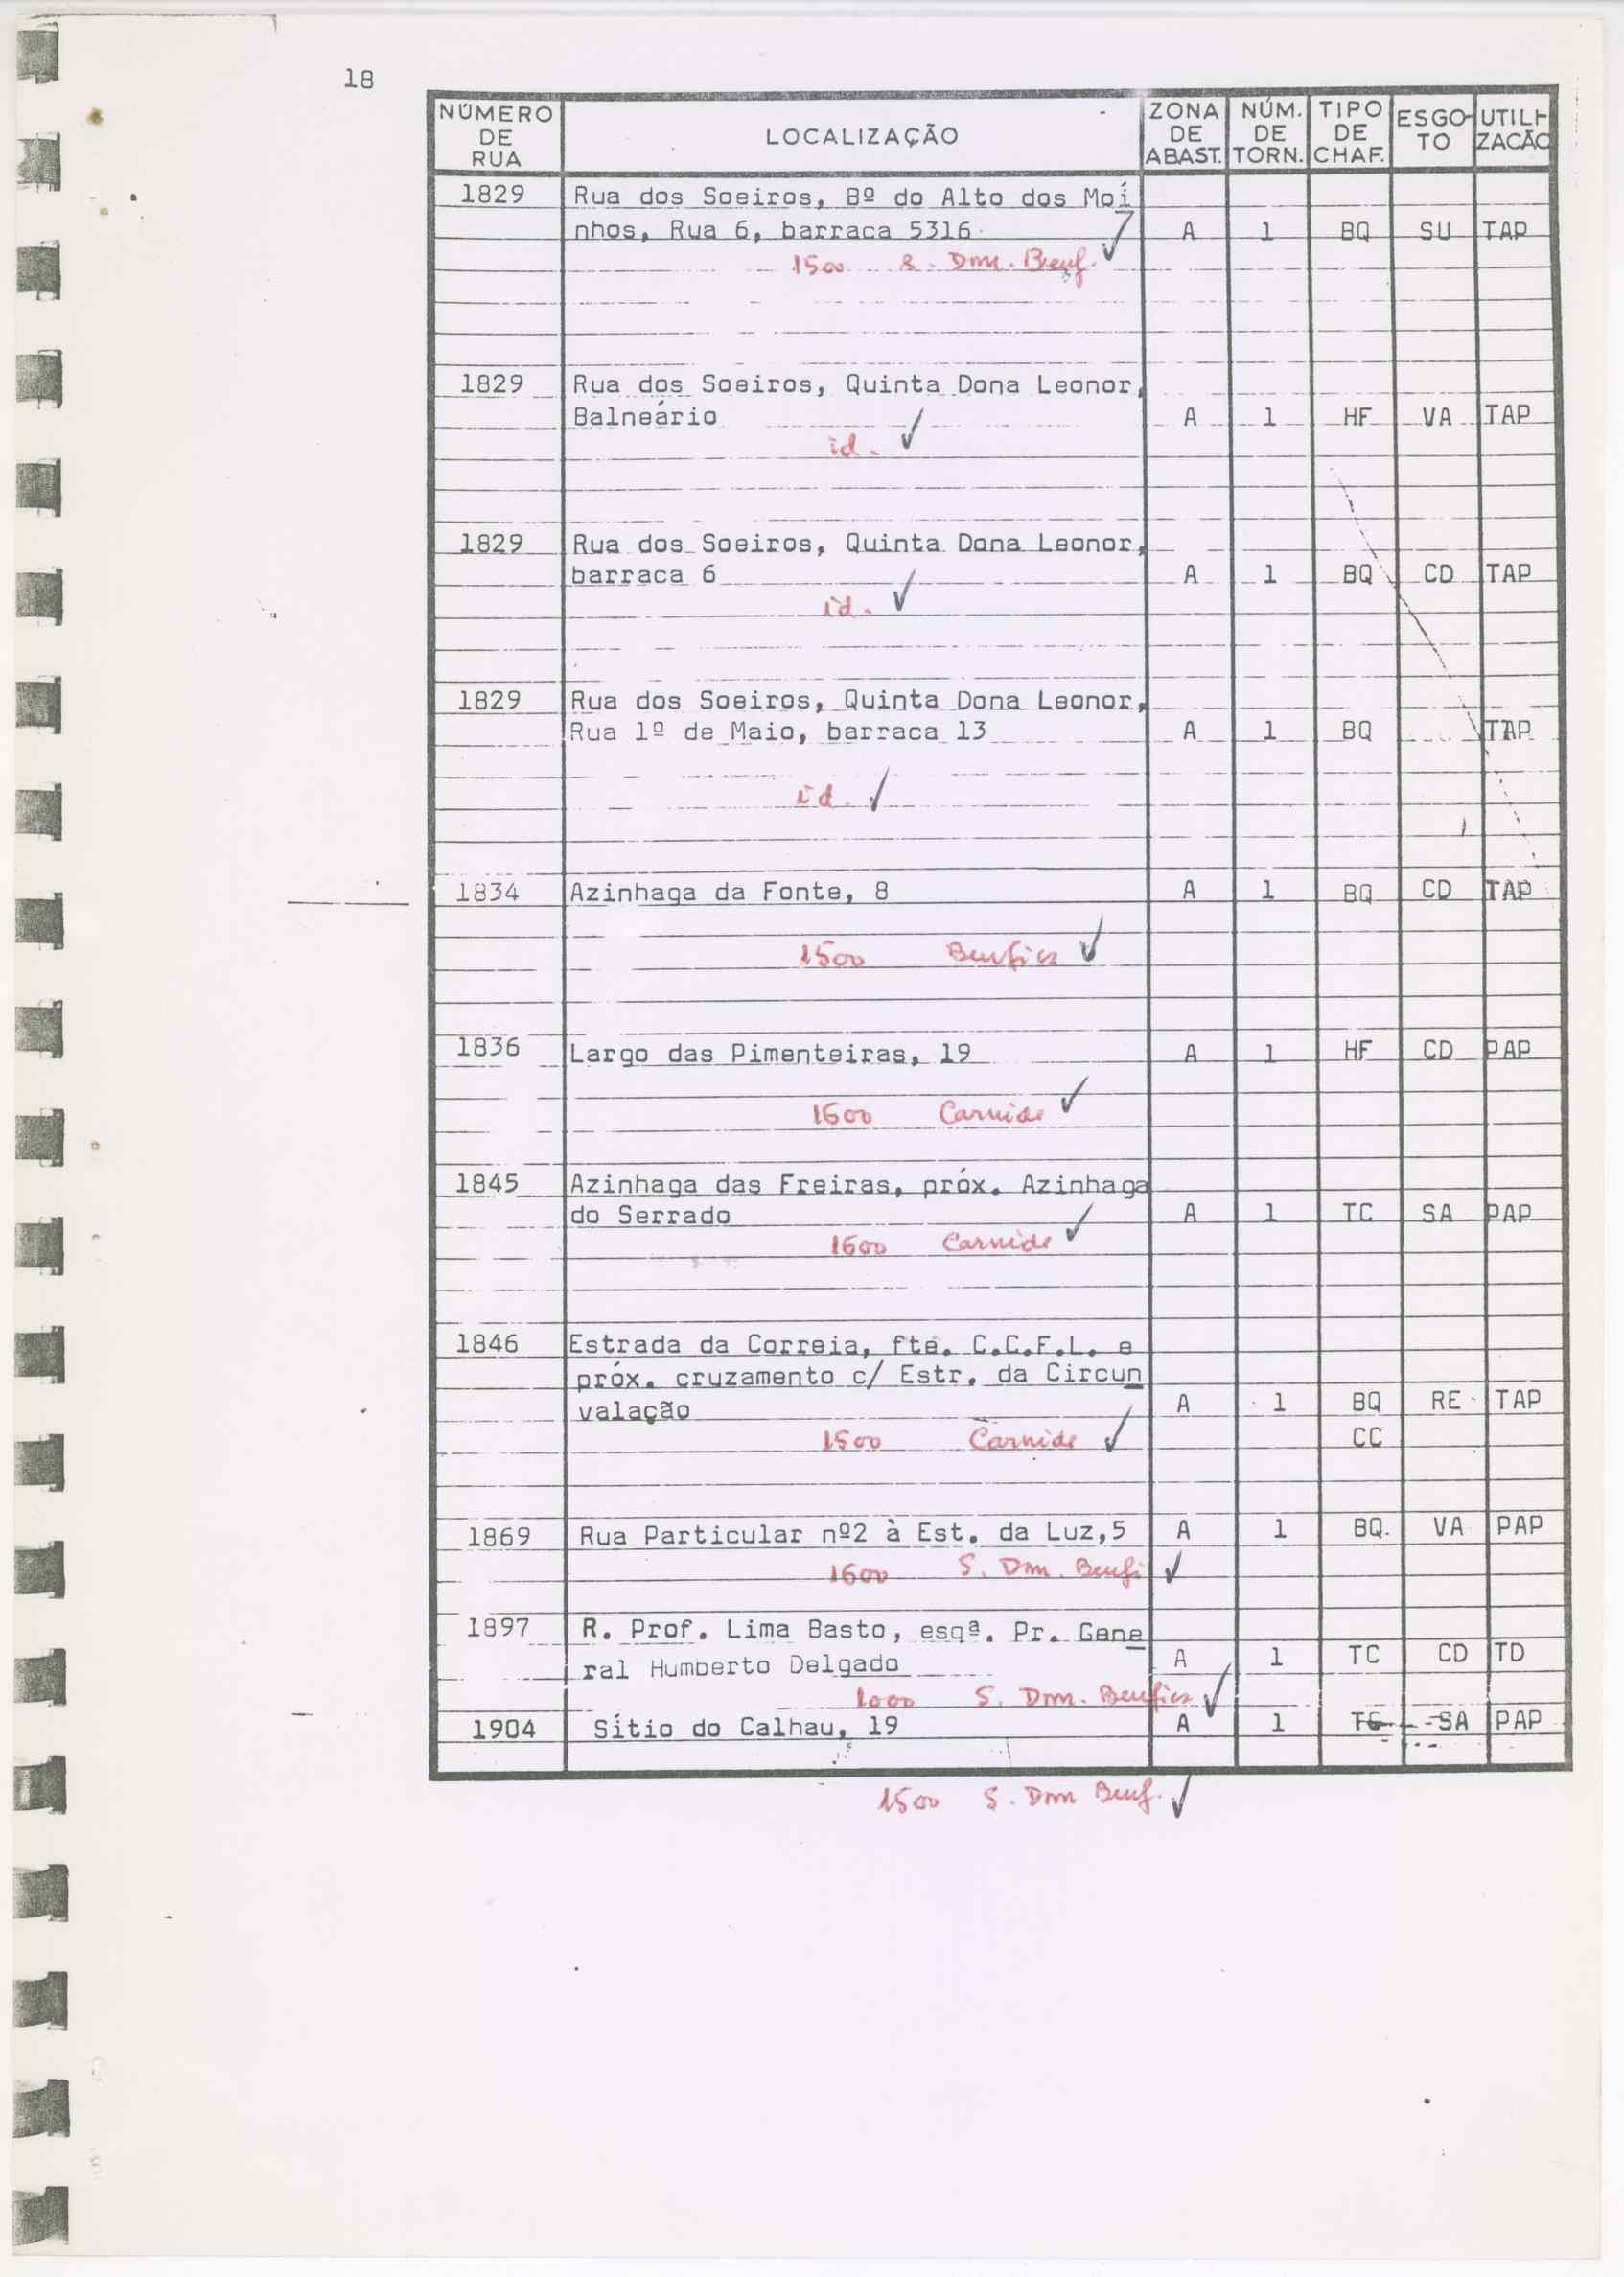 18
NÚMERO DE RUA LOCALIZAÇÃO ZONA DE ABAST. NÚM. DE TORN. TIPO DE CHAF. ESGO-TO UTILI-ZACÃO
1829 Rua dos Soeiros, Bº do Alto dos Moi
nhos, Rua 6, barraca 5316 A 1 BQ SU TAP
1500 S. Dom. Benf. ✓
1829 Rua dos Soeiros, Quinta Dona Leonor,
Balneário A 1 HF VA TAP
id. ✓
1829 Rua dos Soeiros, Quinta Dona Leonor,
barraca 6 A 1 BQ CD TAP
id. ✓
1829 Rua dos Soeiros, Quinta Dona Leonor,
Rua 1º de Maio, barraca 13 A 1 BQ TAP
id. ✓
1834 Azinhaga da Fonte, 8 A 1 BQ CD TAP
1500 Benfica ✓
1836 Largo das Pimenteiras, 19 A 1 HF CD PAP
1600 Carnide ✓
1845 Azinhaga das Freiras, próx. Azinhaga
do Serrado A 1 TC SA PAP
1600 Carnide ✓
1846 Estrada da Correia, fte. C.C.F.L. e
próx. cruzamento c/ Estr. da Circun
valação A 1 BQ RE TAP
1500 Carnide ✓ CC
1869 Rua Particular nº2 à Est. da Luz,5 A 1 BQ. VA PAP
1600 S. Dom. Benfi ✓
1897 R. Prof. Lima Basto, esqª. Pr. Gene
ral Humberto Delgado A 1 TC CD TD
1000 S. Dom. Benfica ✓
1904 Sítio do Calhau, 19 A 1 TC SA PAP
1500 S. Dom Benf. ✓